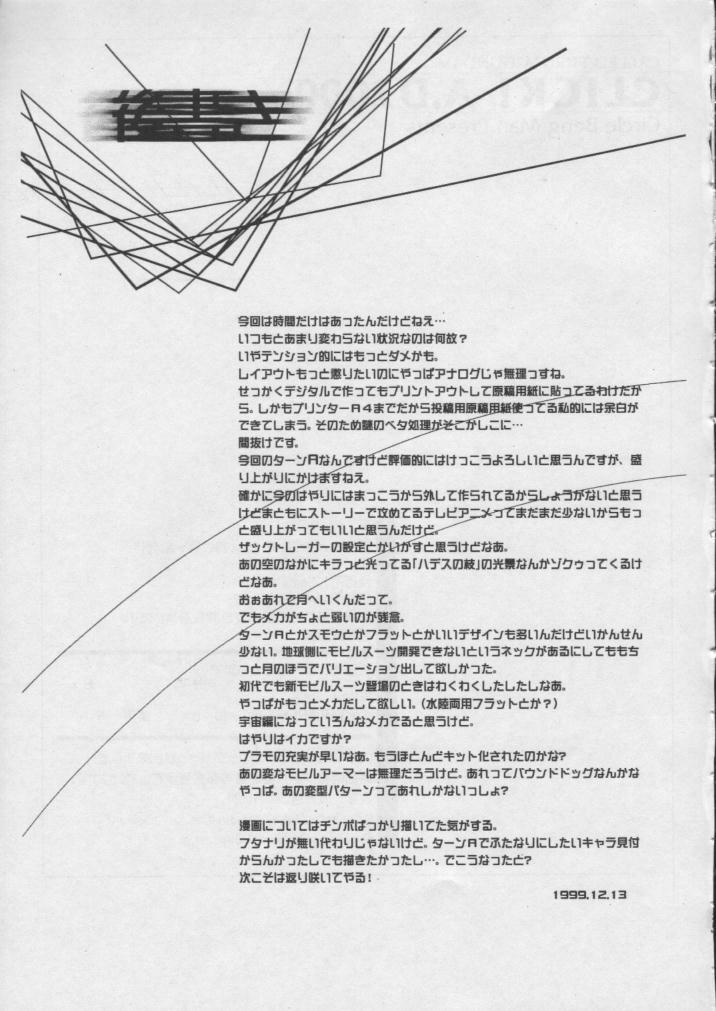 後書き
今回は時間だけはあったんだけどねえ…
いつもとあまり変わらない状況なのは何故？
いやテンション的にはもっとダメかも。
レイアウトもっと懲りたいのにやっぱアナログじゃ無理っすね。
せっかくデジタルで作ってもプリントアウトして原稿用紙に貼ってるわけだか
ら。しかもプリンターA４までだから投稿用原稿用紙使ってる私的には余白が
できてしまう。そのため謎のベタ処理がそこかしこに…
間抜けです。
今回のターンAなんですけど評価的にはけっこうよろしいと思うんですが、盛
り上がりにかけますねえ。
確かに今のはやりにはまっこうから外して作られてるからしょうがないと思う
けどまともにストーリーで攻めてるテレビアニメってまだまだ少ないからもっ
と盛り上がってもいいと思うんだけど。
ザックトレーガーの設定とかいかすと思うけどなあ。
あの空のなかにキラっと光ってる「ハデスの枝」の光景なんかゾクゥってくるけ
どなあ。
おぉあれで月へいくんだって。
でもメカがちょと弱いのが残念。
ターンAとかスモウとかフラットとかいいデザインも多いんだけどいかんせん
少ない。地球側にモビルスーツ開発できないというネックがあるにしてももち
っと月のほうでバリエーション出して欲しかった。
初代でも新モビルスーツ登場のときはわくわくしたしたしなあ。
やっぱがもっとメカだして欲しい。（水陸両用フラットとか？）
宇宙編になっていろんなメカでると思うけど。
はやりはイカですか？
プラモの充実が早いなあ。もうほとんどキット化されたのかな？
あの変なモビルアーマーは無理だろうけど。あれってバウンドドッグなんかな
やっぱ。あの変型パターンってあれしかないっしょ？
漫画についてはチンポばっかり描いてた気がする。
フタナリが無い代わりじゃないけど。ターンAでふたなりにしたいキャラ見付
からんかったしでも描きたかったし…。でこうなったと？
次こそは返り咲いてやる！
1999.12.13